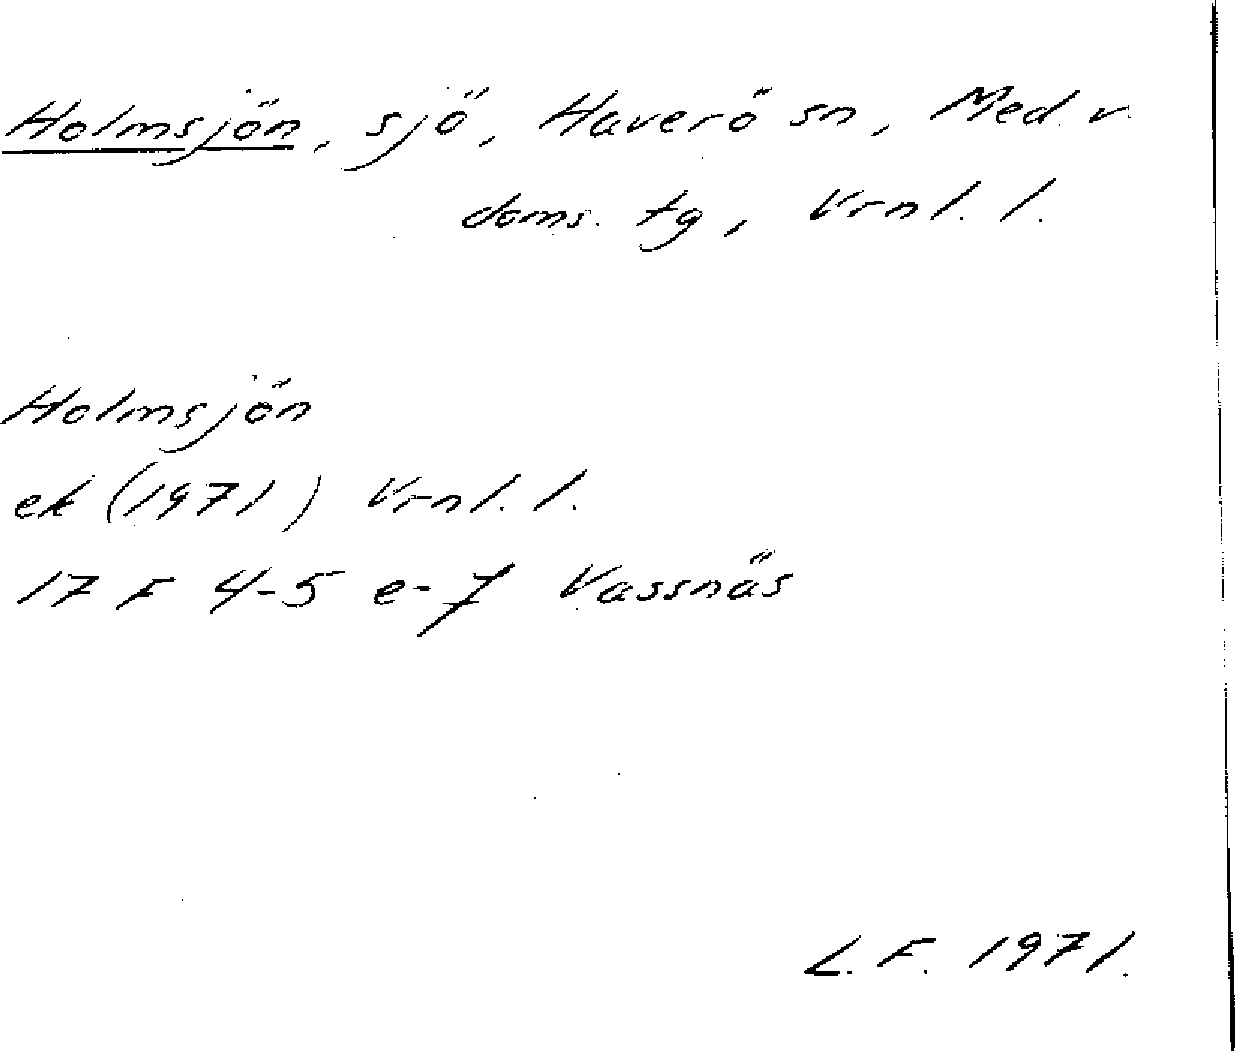 Holmsjön, sjö, Haverö sn, Med. v.
doms. tg, Vrnl. l.
Holmsjön
ek (1971) Vrnl. l.
17 F 4-5 e-f Vassnäs
L. F. 1971.